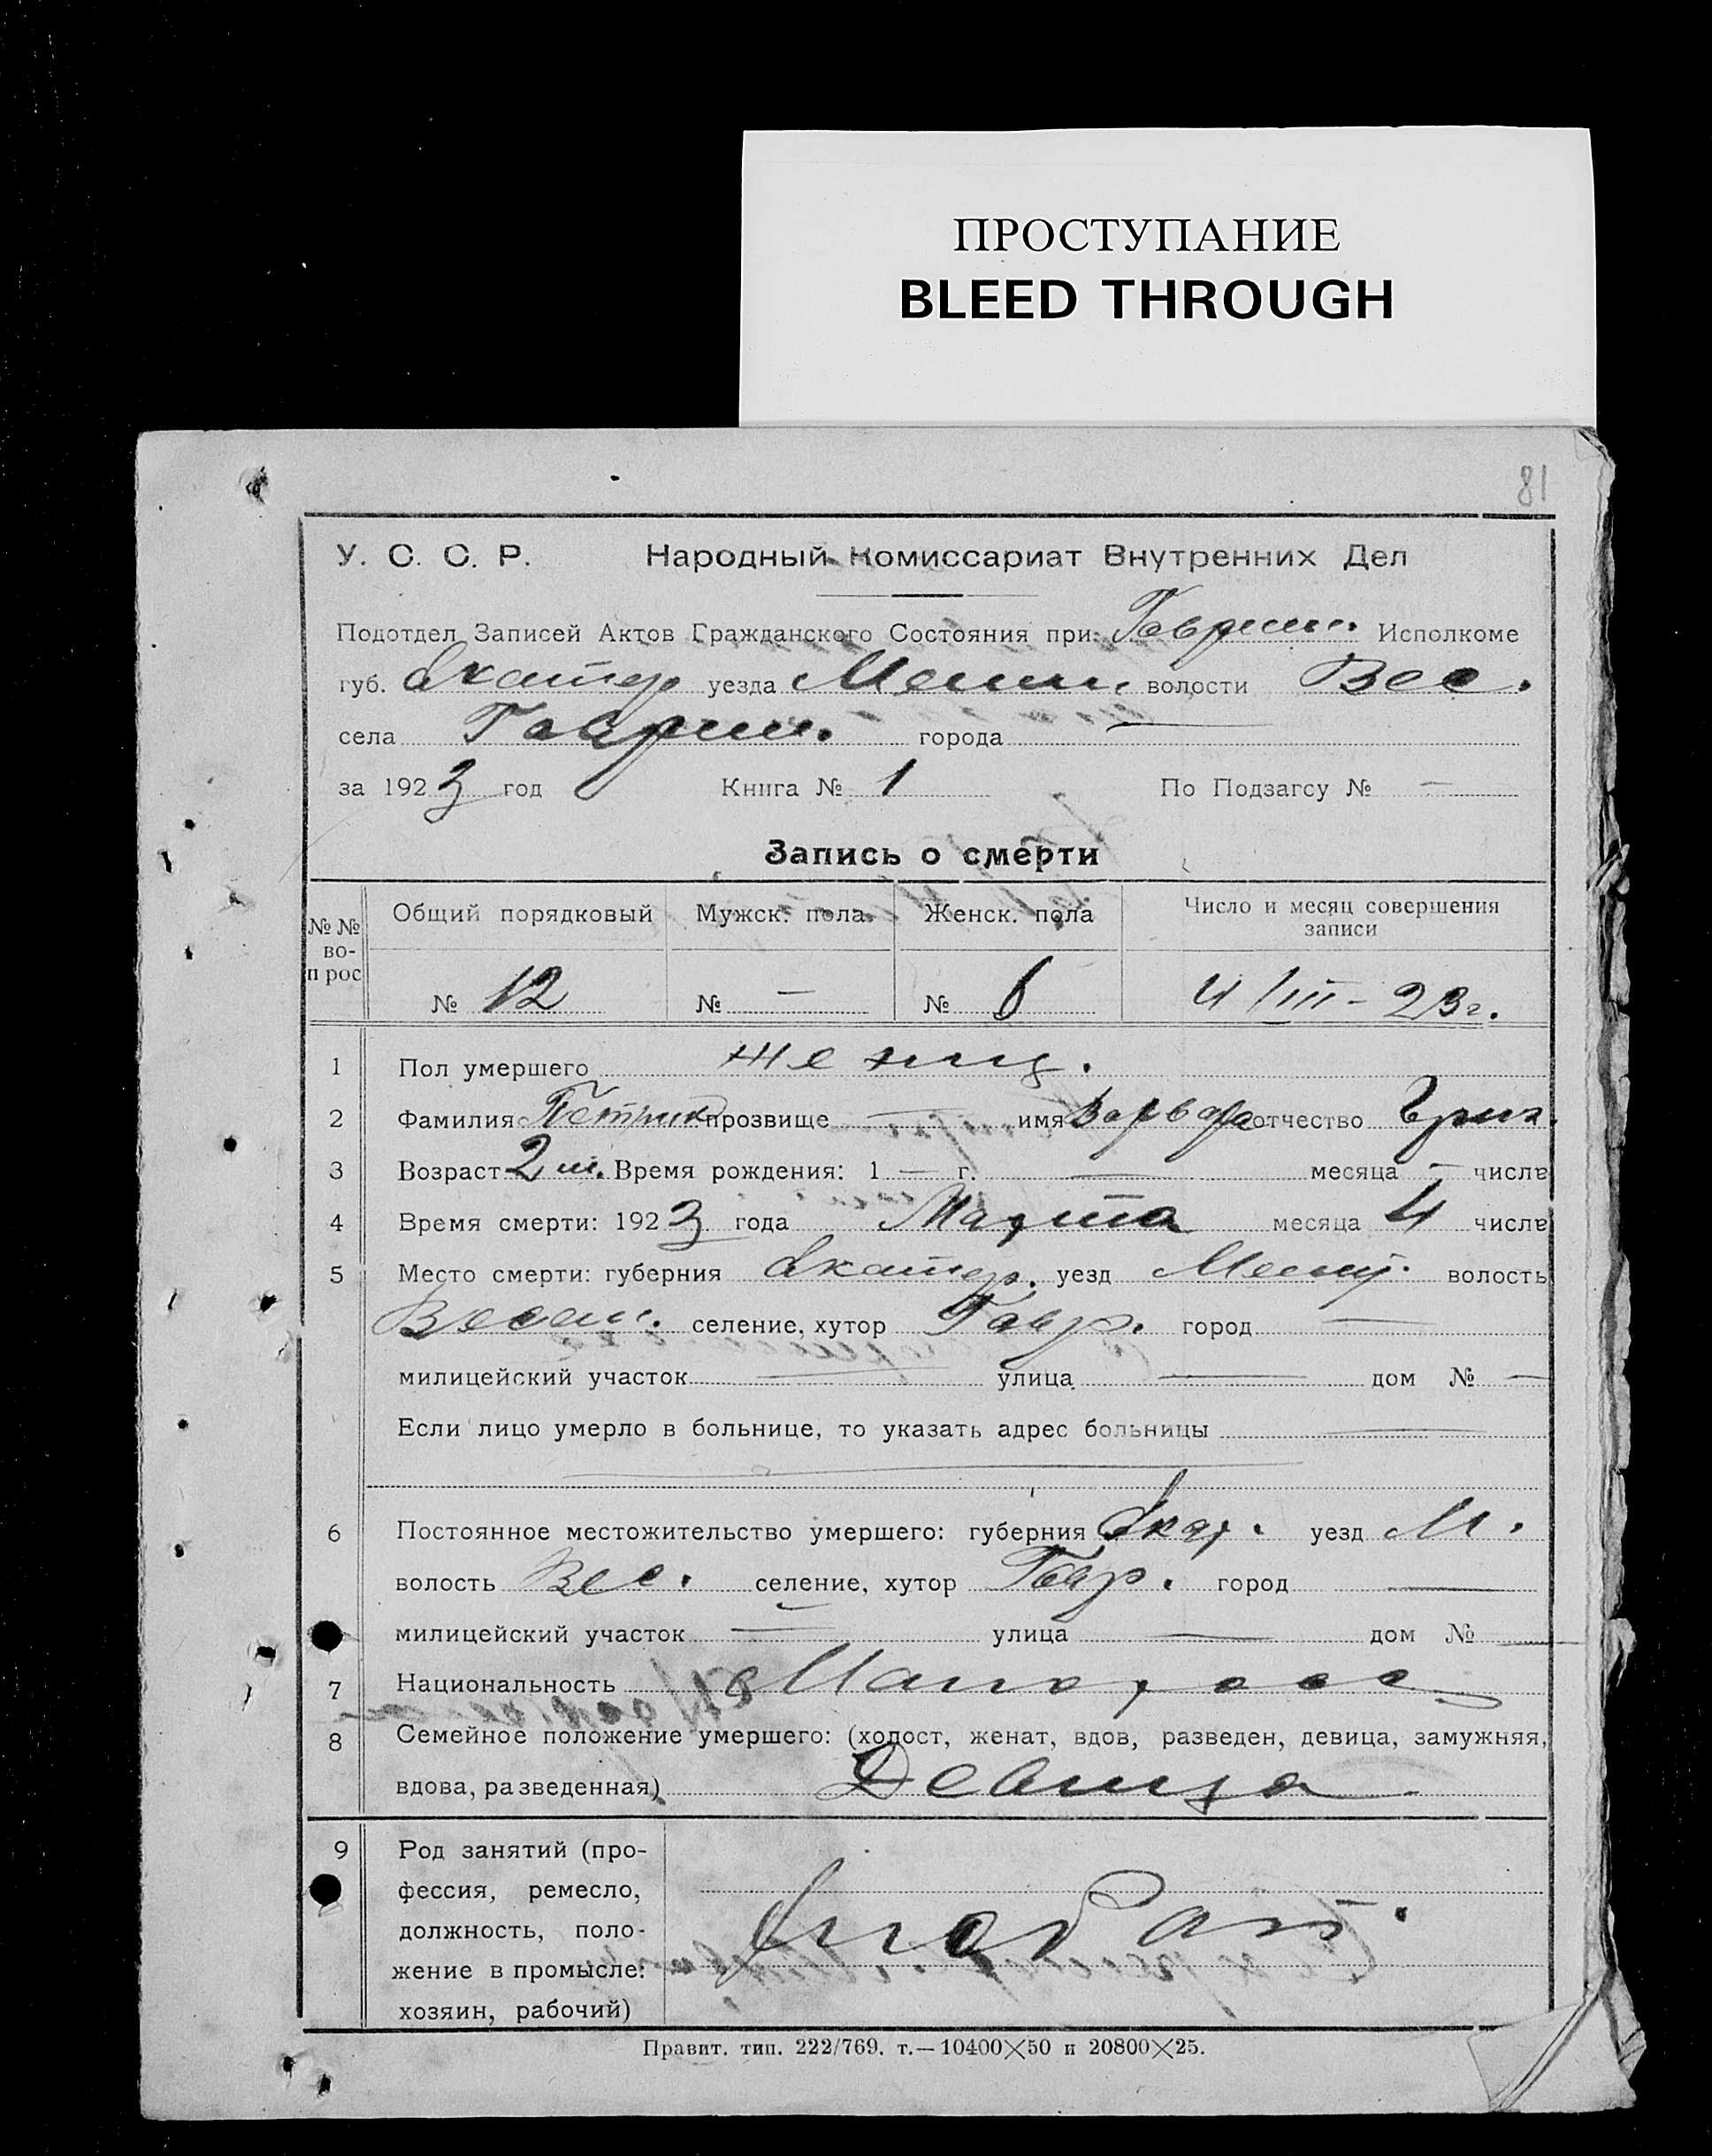 ПРОСТУПАНИЕ
BLEED THROUGH
81
У. С. С. Р. Народный Комиссариат Внутренних Дел
Подотдел Записей Актов Гражданского Состояния при: Гаврил. Исполкоме
губ. Екатер уезда волости Вес.
села Гаврил. города —
за 1923 год Книга № 1 По Подзагсу № —
Запись о смерти
№№ во-прос Общий порядковый Мужск. пола Женск. пола Число и месяц совершения записи
№ 12 № — № 4/III-23г.
1 Пол умершего женщ.
2 Фамилия Петрик прозвище — имя Варвара отчество Григ.
3 Возраст 2 м. Время рождения: 1 — г. — месяца — числа
4 Время смерти: 1923 года Марта месяца 4 числа
5 Место смерти: губерния Екатер. уезд волость
Весел. селение, хутор Гавр. город —
милицейский участок — улица — дом № —
Если лицо умерло в больнице, то указать адрес больницы —
6 Постоянное местожительство умершего: губерния Екат. уезд М.
волость Вес. селение, хутор Гавр. город —
милицейский участок — улица — дом № —
7 Национальность Малорос
8 Семейное положение умершего: (холост, женат, вдов, разведен, девица, замужняя,
вдова, разведенная) Девица
9 Род занятий (про-
фессия, ремесло,
должность, поло-
жение в промысле:
хозяин, рабочий)
Правит. тип. 222/769. т.—10400×50 и 20800×25.